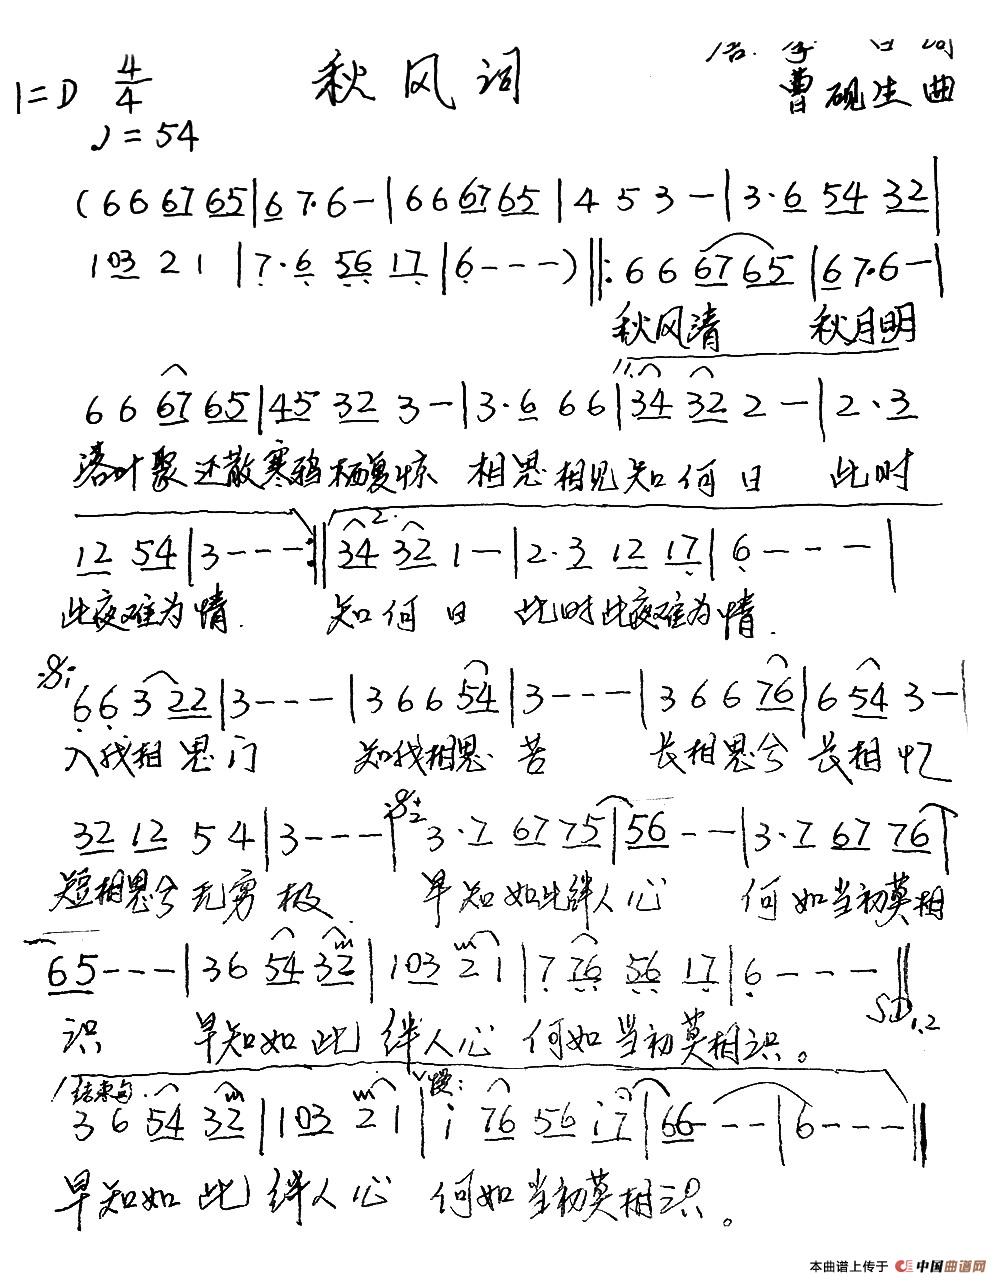 秋风词
1=D 4/4
♩=54
唐·李白词
曹砚生曲
(6 6 67 65|6 7·6-|6 6 67 65|4 5 3-|3·6 54 32|
1 03 2 1|7·6 56 17|6---)‖:6 6 67 65|6 7·6-|
秋风清 秋月明
1.
6 6 67 65|45 32 3-|3·6 6 6|34 32 2-|2·3
落叶聚还散寒鸦栖复惊 相思相见知何日 此时
2.
12 54|3---:‖34 32 1-|2·3 12 17|6---|
此夜难为情. 知何日 此时此夜难为情.
𝄋1
6 6 3 22|3---|3 6 6 54|3---|3 6 6 76|6 54 3-|
入我相思门 知我相思苦 长相思兮长相忆
𝄋2
32 12 5 4|3---|3·7 67 75|56--|3·7 67 76|
短相思兮无穷极 早知如此绊人心 何如当初莫相
65---|36 54 32|103 21|7 76 56 17|6---‖
识 早知如此绊人心 何如当初莫相识。
SD1,2
结束句 慢:
3 6 54 32|1 03 2 1|i 76 56 i7|66---|6---‖
早知如此绊人心 何如当初莫相识。
本曲谱上传于 中国曲谱网